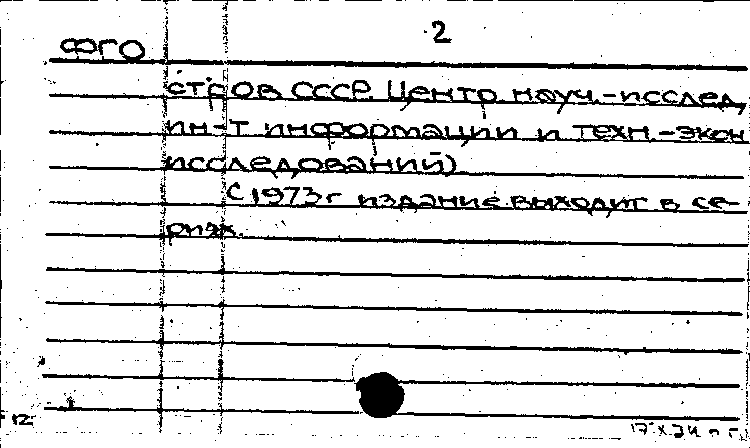 2
ФГО
стров СССР. Центр. науч.-исслед.
ин-т информации и техн.-экон
исследований)
С 1973г издание выходит в се-
риях.
12